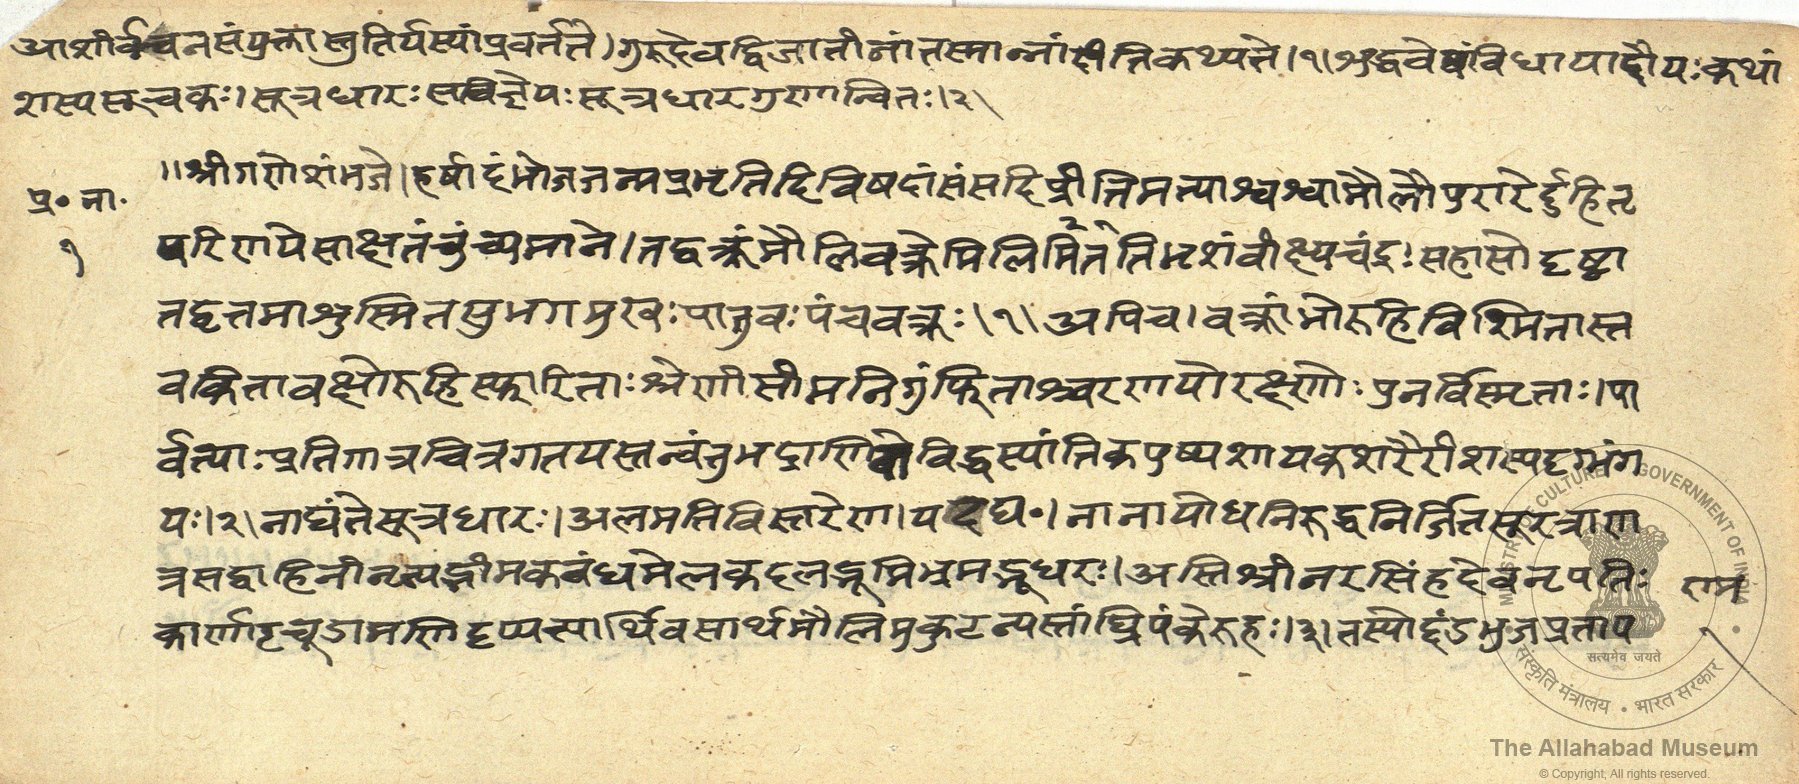 आशीर्वचनसंयुक्ता स्तुतिर्यस्यां प्रवर्तते । गुरुदेवद्विजातीनां तस्मान्नांदीति कथ्यते ।१। शुद्धवेषं विधायादौ यः कथां
शस्य सूचकः । सूत्रधारः स विज्ञेयः सूत्रधारगुणान्वितः ।२।
॥ श्रीगणेशं भजे । हर्षादंभोजजन्मप्रभृतिदिविषदां संसदि प्रीतिमत्या श्वश्र्वा मौलौ पुरारेर्दुहितृ
प्र॰ ना॰
परिणये साक्षतं चुंब्यमाने । तद्वक्त्रं मौलिवक्त्रे मिलितमिति भृशं वीक्ष्य चंद्रः सहासो दृष्ट्वा
१
तद्वृत्तमाशु स्मितसुभगमुखः पातु वः पंचवक्त्रः ।१। अपि च । वक्त्रांभोरुहि विस्मिता स्त
वकिता वक्षोरुहि स्फारिताः श्रेणीसीमनि गुंफिताश्चरणयोरक्ष्णोः पुनर्विस्मृताः । पा
र्वत्याः प्रतिगात्रचित्रगतयस्तन्वंतु भद्राणि वो विद्धस्यांतिकपुष्पशायकशरैरीशस्य दृग्भंग
यः ।२। नाद्यंते सूत्रधारः । अलमतिविस्तरेण । यदद्य॰ । नानायोधनिरुद्धनिर्जितसुरत्राण
त्रसद्वाहिनीनृत्यद्भीमकबंधमेलकदलद्भूमिभ्रमद्भूधरः । अस्ति श्रीनरसिंहदेवनृपतिः
कार्णाटचूडामणिर्दृप्यत्पार्थिवसार्थमौलिमुकुटन्यस्तांघ्रिपंकेरुहः ।३। तस्योद्दंडभुजप्रताप
राम
१
MINISTRY OF CULTURE GOVERNMENT OF INDIA
सत्यमेव जयते
संस्कृति मंत्रालय • भारत सरकार
The Allahabad Museum
© Copyright, All rights reserved.